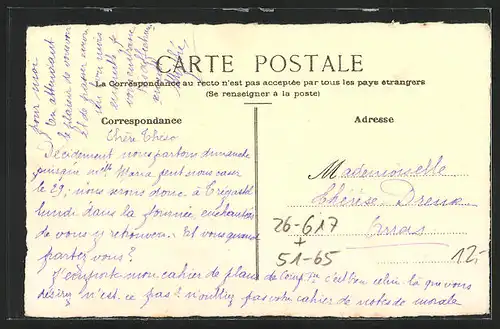 CARTE POSTALE
La Correspondance au recto n'est pas acceptée par tous les pays étrangers
(Se renseigner à la poste)
Correspondance
Adresse
Chère Thérèse
Décidément nous partons dimanche
puisque Mlle Maria peut nous caser
le 29; nous serons donc à Trégastel
lundi dans la journée, enchantées
de vous y retrouver. Et vous quand
partez vous?
J'emporte mon cahier de plans de c'est bien celui là que vous
désirez n'est ce pas? n'oubliez pas votre cahier de notes de morale
pour moi
En attendant
le plaisir de
Mademoiselle
Thérèse Dreux
Arras
26-617
+
51-65
12.-